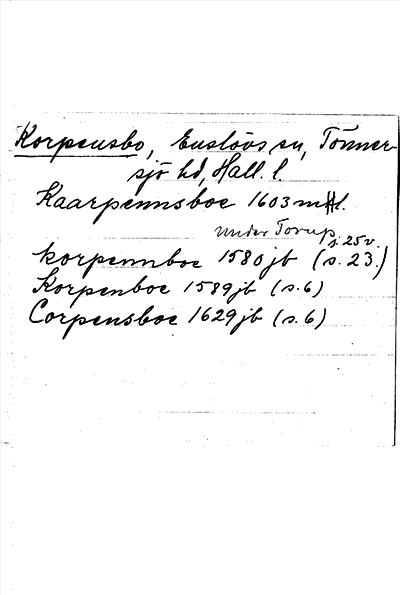 Korpensbo, Enslövs sn, Tönner-
sjö hd, Hall. l.
Kaarpennsboe 1603 mHl.
under Torup s. 25 v.
korpennboe 1580 jb (s. 23.)
Korpenboe 1589 jb (s. 6)
Corpensboe 1629 jb (s. 6)